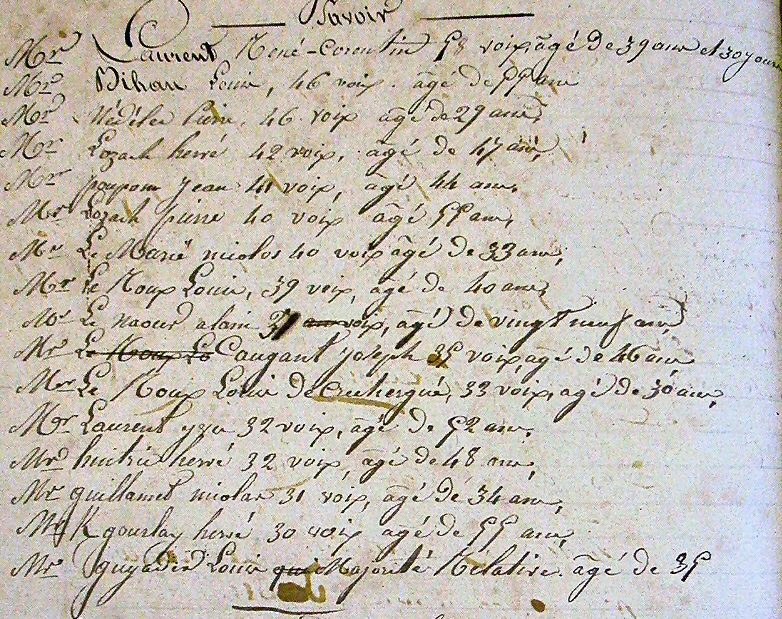 Savoir
Mr Laurent René-Corentin 58 voix, agé de 39 ans et 30 jours
Mr Bihan Louis, 46 voix. agé de 55 ans
Mr Nédélec Pierre, 46 voix agé de 29 ans,
Mr Lozach hervé 42 voix, agé de 47 ans,
Mr poupon Jean 41 voix, agé 44 ans,
Mr Lozach pierre 40 voix agé 55 ans,
Mr Le Marié nicolas 40 voix agé de 33 ans,
Mr le Roux Louis, 39 voix, agé de 40 ans,
Mr Le naour alain voix, agé de vingt neuf ans
Mr Le Roux Lo Caugant Joseph 35 voix, agé de 46 ans
Mr Le Roux Louis de, 33 voix, agé de 30 ans,
Mr Laurent yzu 32 voix, agé de 52 ans,
Mr huitric hervé 32 voix, agé de 48 ans,
Mr guillamet nicolas 31 voix, agé de 34 ans,
Mr K gourlay hervé 30 voix agé de 55 ans,
Mr guyader Louis qui Majorité Relative. agé de 35